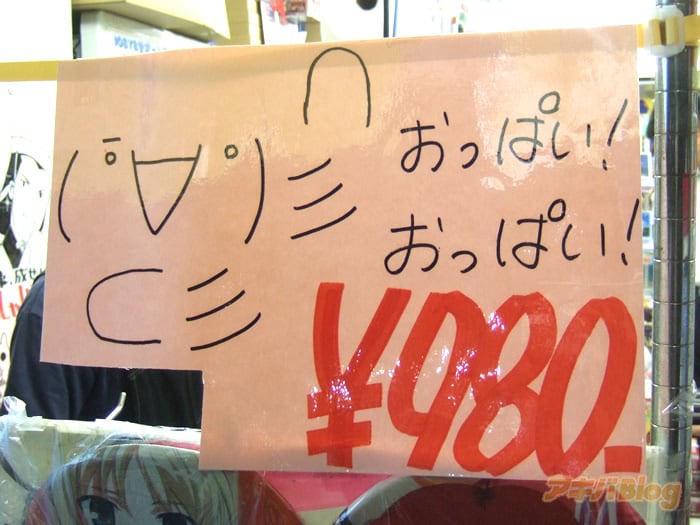 ∩
(゚∀゚)彡
⊂彡
おっぱい!
おっぱい!
¥980.
アキバBlog